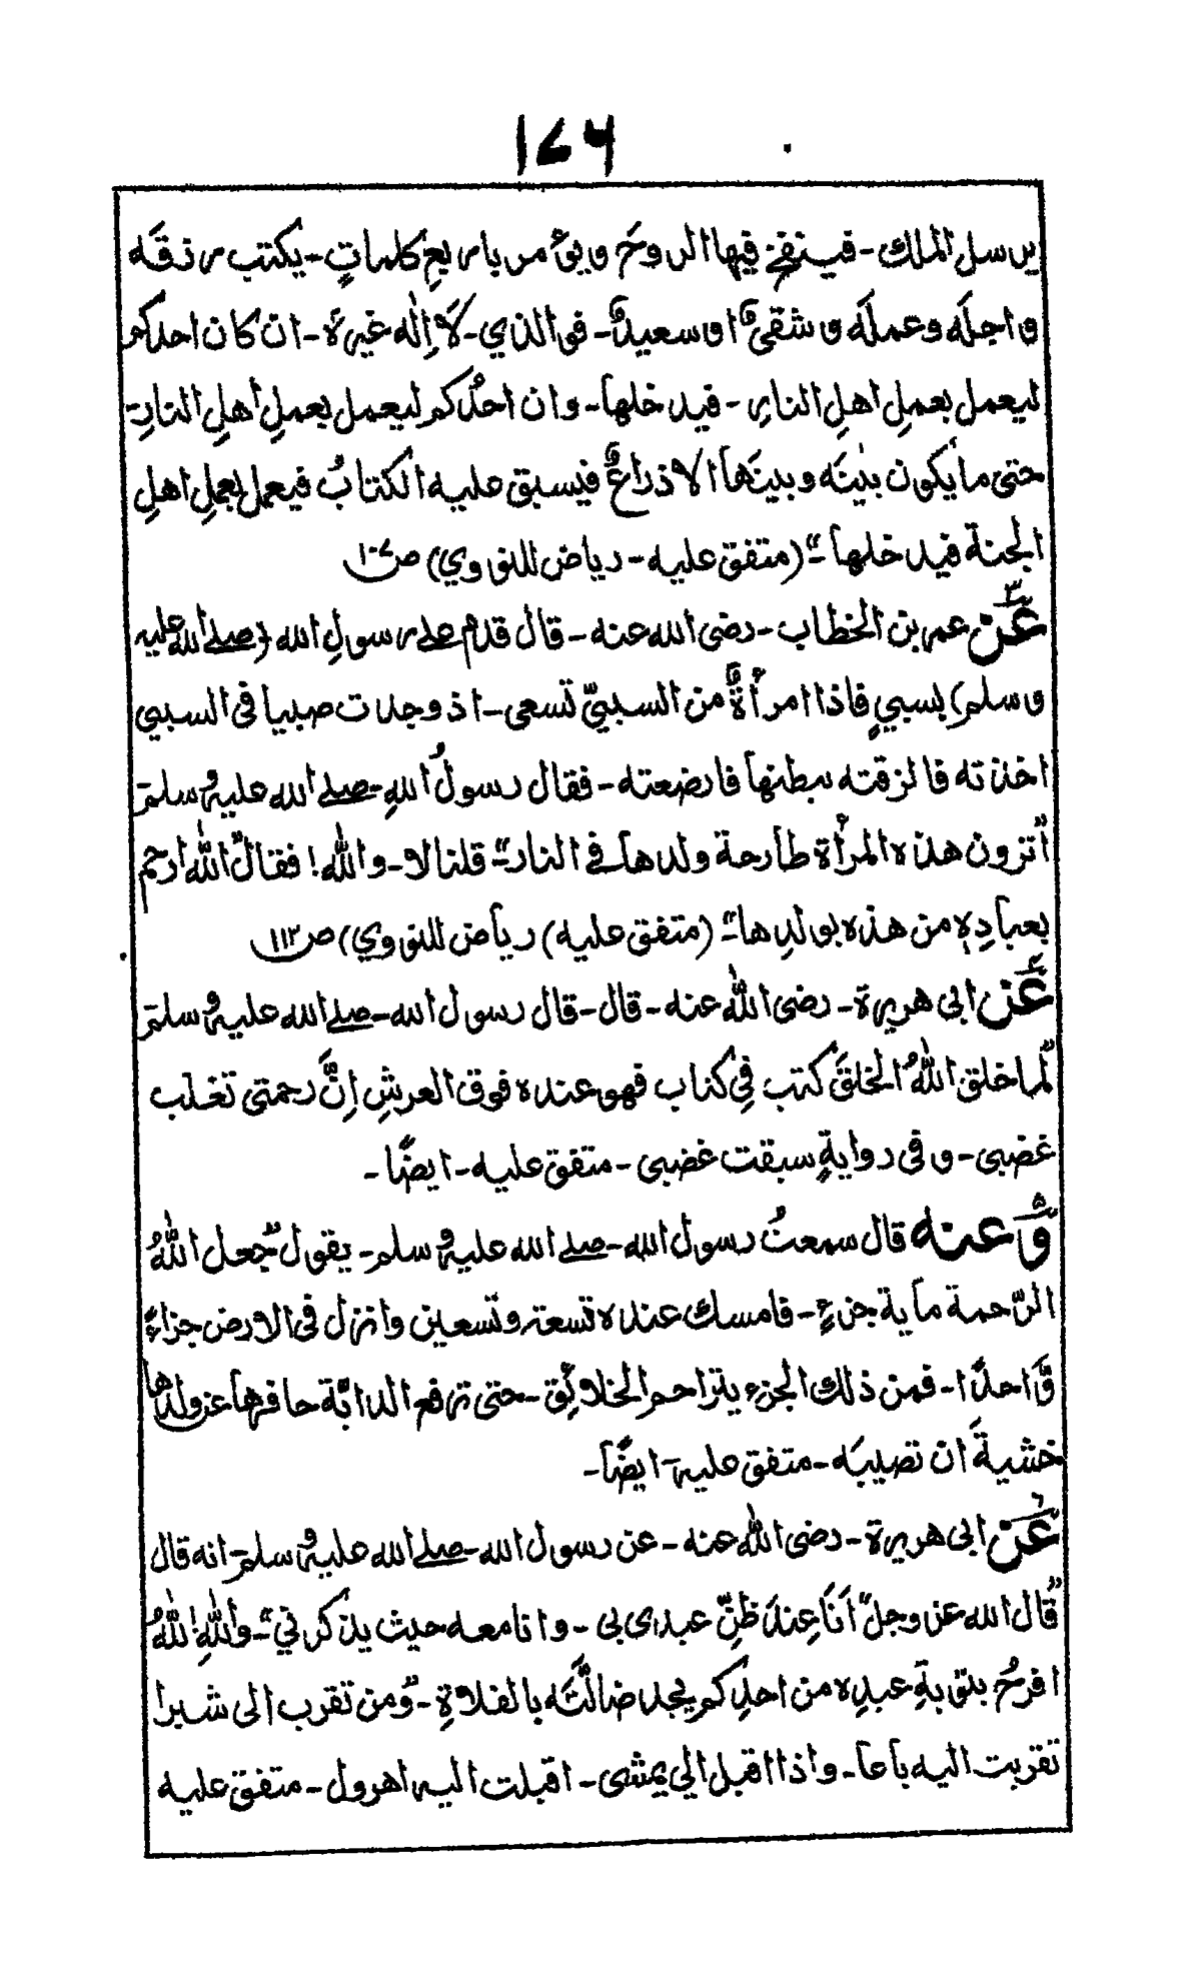 ۱۷۶
يرسل الملك - فينفخ فيها الروحَ ويؤمر باربعِ كلماتٍ - يكتب رزقَه
واجلَه وعملَه وشقيٌّ او سعيدٌ - فوالذي - لَا اِلٰه غيرهٗ - ان كان احدكم
ليعمل بعملِ اهلِ النارِ - فيدخلها - وان احدُكم ليعمل بعملِ اهلِ النارِ
حتى ما يكون بينَه وبينَها الا ذراعٌ فيسبق عليه الكتابُ فيعمل بعملِ اهلِ
الجنة فيدخلها - ” (متفق عليه - رياض للنووي) ص۱۰۷
۳ عَن عمر بن الخطاب - رضى الله عنه - قال قدم على رسولِ الله (صلے الله عليه
وسلم) بسبيٍ فاذا امرأةٌ من السبيّ تسعى - اذ وجدت صبيا فى السبي
اخذته فالزقته ببطنها فارضعته - فقال رسولُ اللهِ - صلے الله عليه وسلم -
”أترون هذه المرأة طارحة ولدها فے النار“ - قلنا لا - والله! فقال ”اللهُ ارحم
بعبادِهٖ من هذه بولدِها“ - (متفق عليه) رياض للنووي) ص۱۱۳
۴ عَن ابى هريرة - رضى الله عنه - قال - قال رسول الله - صلے الله عليه وسلم -
”لما خلق اللهُ الخلقَ كتب فِي كتاب فهو عنده فوق العرشِ اِنَّ رحمتى تغلب
غضبى - وفى روايةٍ سبقت غضبى - متفق عليه - ايضًا -
۵ وَعنه قال سمعتُ رسول الله - صلے الله عليه وسلم - يقول ”جعل اللهُ
الرّحمة ماية جزءٍ - فامسك عنده تسعة وتسعين وانزل فى الارض جزاءً
وَّاحدًا - فمن ذلك الجزء يتراحم الخلائِق - حتى ترفع الدابّة حافرها عن ولدها
خشيةَ ان تصيبَه - متفق عليه - ايضًا -
۶ عَن ابى هريرة - رضى الله عنه - عن رسول الله - صلے الله عليه وسلم - انه قال
”قال الله عز وجل“ اَنَا عِندَ ظنِّ عبدى بى - وانا معه حيث يذكرني“ - واللهِ! للهُ
افرحُ بتوبةِ عبدِه من احدِكم يجد ضالّتَه بالفلاةِ - ”ومن تقرب الى شبرا
تقربت اليه باعا - واذا اقبل الي يمشى - اقبلت اليه اهرول - متفق عليه